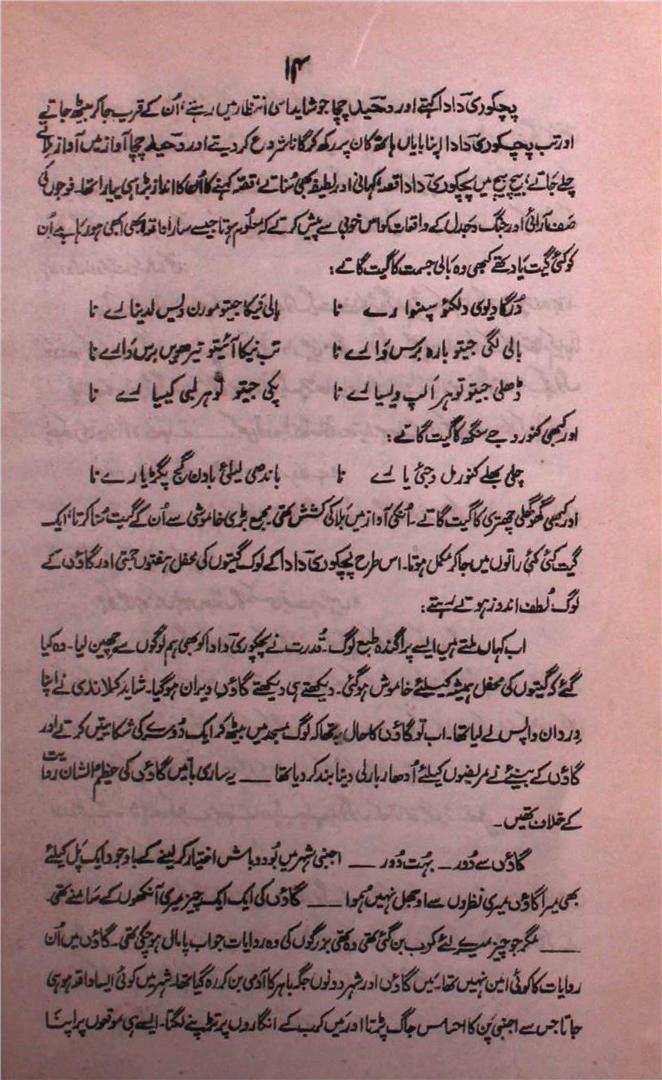 ۱۴
پچکوری دادا کہتے اور وحید چچا جو شاید اسی انتظار میں رہتے، اُن کے قرب جا کر بیٹھ جاتے
اور تب پچکوری دادا اپنا بایاں ہاتھ کان پر رکھ کر گانا شروع کر دیتے اور وحید چچا آواز میں آواز ملائے
چلے جاتے، بیچ بیچ میں پچکوری دادا قصہ کہانی اور لطیفہ بھی سُناتے، قصّہ کہنے کا اُن کا انداز بڑا ہی پیارا تھا۔ فوجوں کی
صف آرائی اور جنگ و جدل کے واقعات کو اس خوبی سے پیش کرتے کہ معلوم ہوتا جیسے سارا واقعہ ابھی ابھی ہو رہا ہے اُن
کو کئی گیت یاد تھے کبھی وہ بالی جسمت کا گیت گاتے :
دُرگا دیوی دلکئو سپنوا رے نا بالی نیکا جیتو مورن دیس لدینا اے نا
بالی لگی جیتو بارہ برس وَا اے نا تب نیکا آئیتو تیرھویں برس دَا اے نا
ڈھلی جیتو توہر الپ ویسیا اے نا پکی جیتو توہر لمبی کیسیا اے نا
اور کبھی کنور وجے سنگھ کا گیت گاتے :
چلی بھلے کنور مل وجئی یا اے نا باندھی لیلئ بادن گج پگڑیا رے نا
اور کبھی گھوگھلی چھتری کا گیت گاتے۔ اُنکی آواز میں بلا کی کشش تھی مجمع بڑی خاموشی سے اُن کے گیت سُنا کرتا، ایک
گیت کئی کئی راتوں میں جا کر مکمل ہوتا۔ اس طرح پچکوری دادا کے لوک گیتوں کی محفل ہفتوں جمتی اور گاؤں کے
لوگ لُطف اندوز ہوتے رہتے :
اب کہاں ملتے ہیں ایسے پراگندہ طبع لوگ۔ قدرت نے پچکوری دادا کو بھی ہم لوگوں سے چھین لیا۔ وہ کیا
گئے کہ گیتوں کی محفل ہمیشہ کیلئے خاموش ہو گئی۔ دیکھتے ہی دیکھتے گاؤں ویران ہو گیا۔ شاید کملا ندی نے اپنا
وردان واپس لے لیا تھا۔ اب تو گاؤں کا حال یہ تھا کہ لوگ مسجد میں بیٹھ کر ایک دُوسرے کی شکایتیں کرتے اور
گاؤں کے بنیئے نے مریضوں کیلئے اُدھار بارلی دینا بند کر دیا تھا ــــ یہ ساری باتیں گاؤں کی عظیم الشان روایت
کے خلاف تھیں۔
گاؤں سے دُور۔ بہت دُور ــــ اجنبی شہر میں بُود و باش اختیار کر لینے کے باوجود ایک پَل کیلئے
بھی میرا گاؤں میری نظروں سے اوجھل نہیں ہُوا ــــ گاؤں کی ایک ایک چیز میری آنکھوں کے سامنے تھی۔
ــــ مگر جو چیز میرے لئے کرب بن گئی تھی وہ تھی بزرگوں کی وہ روایات جو اب پامال ہو چکی تھی۔ گاؤں میں اُن
روایات کا کوئی امین نہیں تھا۔ میں گاؤں اور شہر دونوں جگہ باہر کا آدمی بن کر رہ گیا تھا۔ شہر میں کوئی ایسا واقعہ ہو ہی
جاتا جس سے اجنبی پَن کا احساس جاگ پڑتا اور میں کرب کے انگاروں پر تڑپنے لگتا۔ ایسے ہی موقعوں پر اپنا